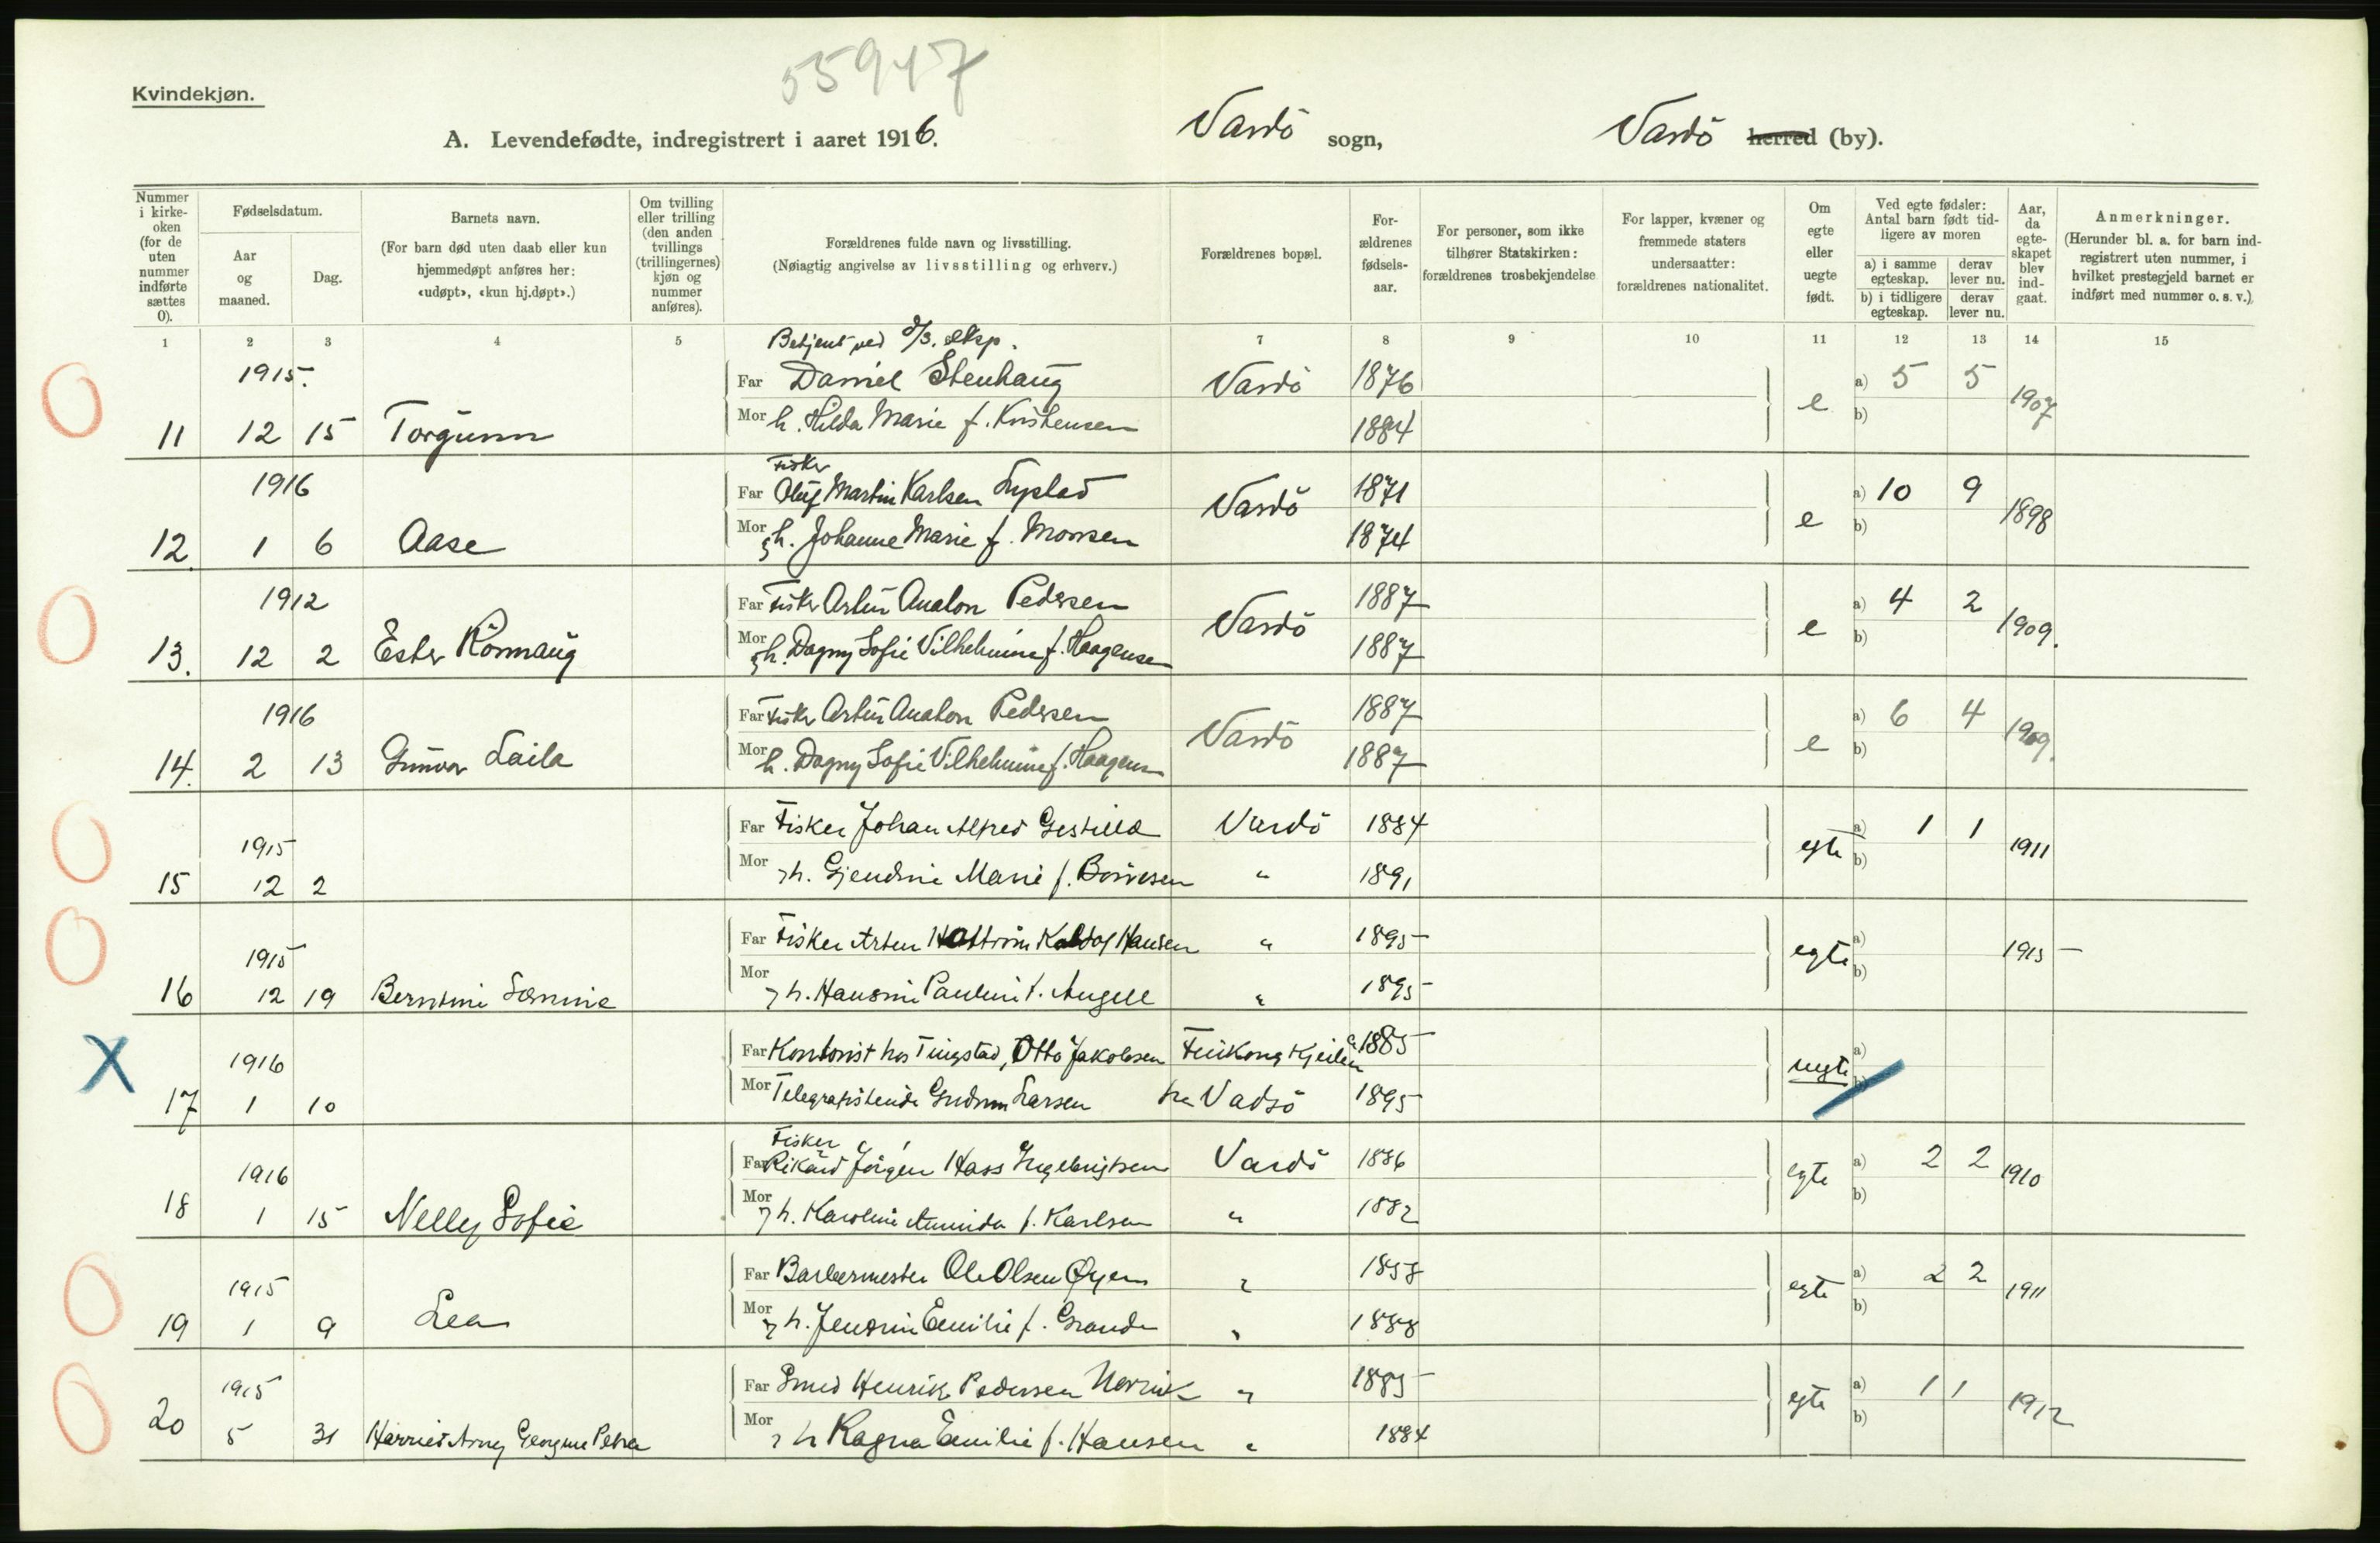 55947
Kvindekjøn.
A. Levendefødte, indregistrert i aaret 1916. Vardö sogn, Vardö herred (by).
Nummer i kirkeoken (for de uten nummer indførte sættes 0).
Fødselsdatum.
Aar og maaned.
Dag.
Barnets navn.
(For barn død uten daab eller kun hjemmedøpt anføres her: «udøpt», «kun hj.døpt».)
Om tvilling eller trilling (den anden tvillings (trillingernes) kjøn og nummer anføres).
Forældrenes fulde navn og livsstilling.
(Nøiagtig angivelse av livsstilling og erhverv.)
Forældrenes bopæl.
Forældrenes fødselsaar.
For personer, som ikke tilhører Statskirken: forældrenes trosbekjendelse
For lapper, kvæner og fremmede staters undersaatter: forældrenes nationalitet.
Om egte eller uegte født.
Ved egte fødsler: Antal barn født tidligere av moren
a) i samme egteskap. derav lever nu.
b) i tidligere egteskap. derav lever nu.
Aar, da egteskapet blev indgaat.
Anmerkninger.
(Herunder bl. a. for barn indregistrert uten nummer, i hvilket prestegjeld barnet er indført med nummer o. s. v.)
1 2 3 4 5 7 8 9 10 11 12 13 14 15
Betjent ved eksp.
1915. Far Daniel Stenhaug Vardö 1876 a) 5 5
11 12 15 Torgunn Mor h. Hilda Marie f. Kristensen 1884 e b) 1907
Fisker
1916 Far Oluf Martin Karlsen Vardö 1871 a) 10 9
12. 1 6 Aase Mor h. Johanne Marie f. Monsen 1874 e b) 1898
1912 Far Fisker Artur Anaton Pedersen Vardö 1887 a) 4 2
13. 12 2 Ester Rönnaug Mor h. Dagny Sofie Vilhelmine f. Haagensen 1887 e b) 1909.
1916 Far Fisker Artur Anaton Pedersen Vardö 1887 a) 6 4
14. 2 13 Gunvor Laila Mor h. Dagny Sofie Vilhelmine f. Haagensen 1887 e b) 1909.
1915 Far Fisker Johan Alfred Vardö 1884 a) 1 1
15 12 2 Mor h. Gjendine Marie f. „ 1891 egte b) 1911
1915 Far Fisker Artur Hansen „ 1895 a)
16 12 19 Mor h. Hansine Pauline f. Angell „ 1895 egte b) 1915
X 1916 Far Kontorist hos Tingstad, Otto Jakobsen 1885 a)
17 1 10 Mor Telegrafistinde Gudrun Larsen fra Vadsö 1895 uegte b)
Fisker
1916 Far Rikard Jörgen Hass Ingebrigtsen Vardö 1886 a) 2 2
18 1 15 Nelly Sofie Mor h. Karoline f. Karlsen „ 1882 egte b) 1910
1915 Far Barbermester Ole Olsen Øyen „ 1888 a) 2 2
19 1 9 Lea Mor h. Jensine Emilie f. Grande „ 1888 egte b) 1911
1915 Far Smed Henrik Pedersen „ 1885 a) 1 1
20 5 31 Harriet Petra Mor h Ragna Emilie f. Hansen „ 1884 egte b) 1912